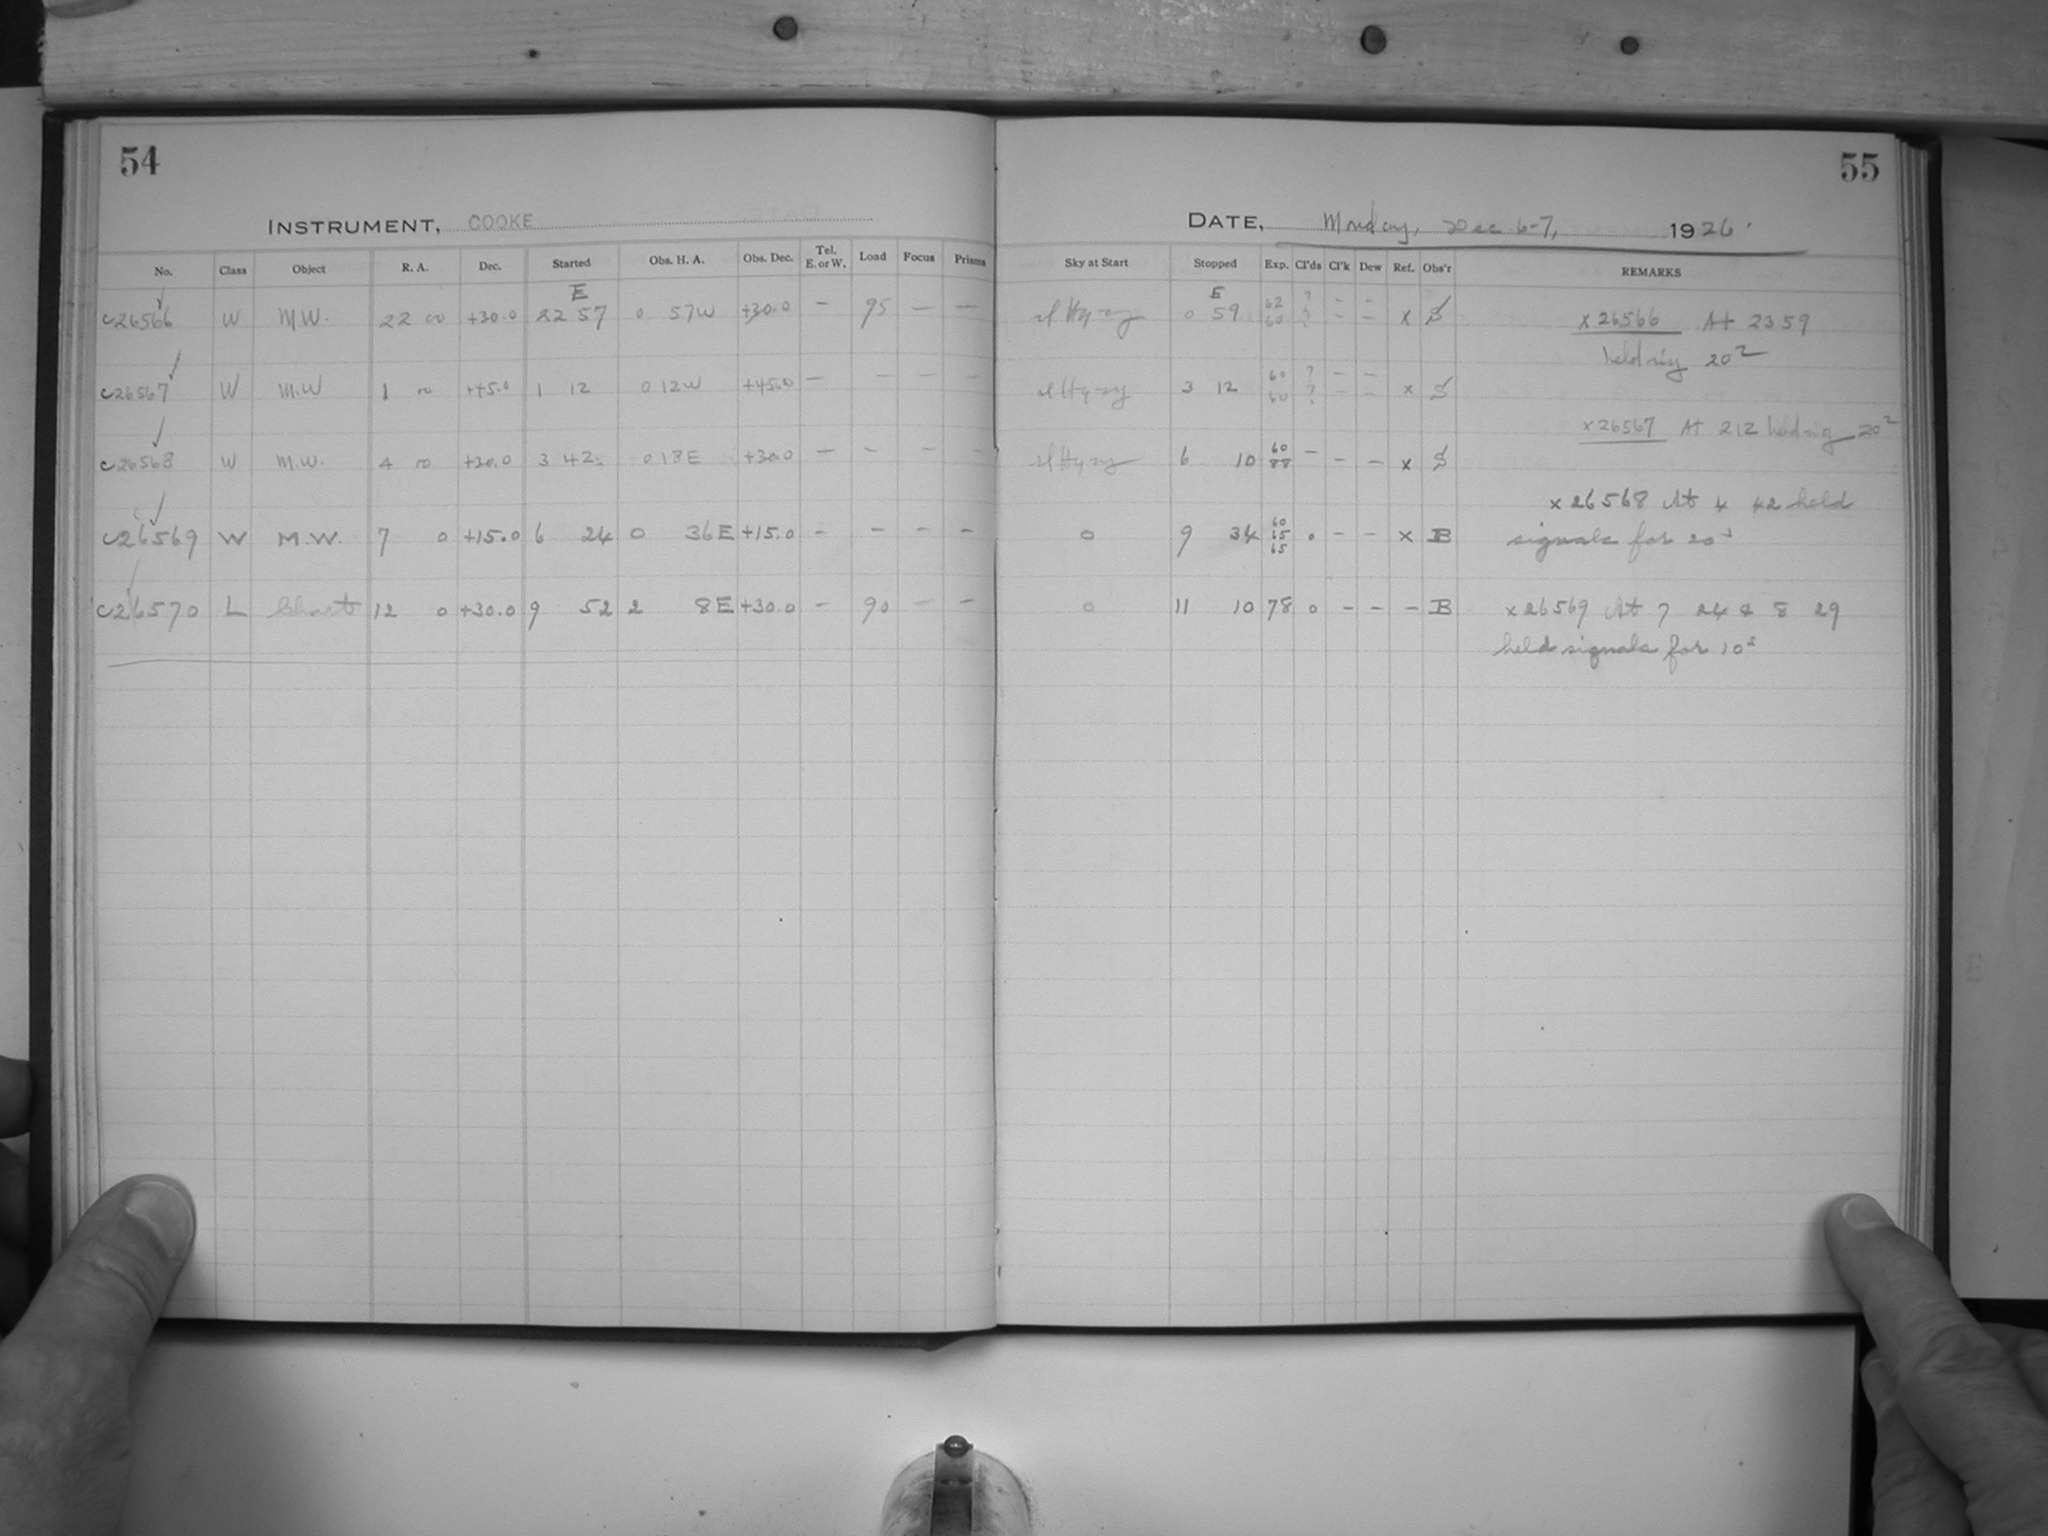 54
INSTRUMENT, COOKE
No. Class Object R. A. Dec. Started Obs. H. A. Obs. Dec. Tel. E. or W. Load Focus Prisms
E
c26566 W M.W. 22 00 +30.0 22 57 0 57W +30.0 — 95 — —
c26567 W M.W 1 00 +45.0 1 12 0 12W +45.0 — — — —
c26568 W M.W. 4 00 +30.0 3 42 0 18E +30.0 — — — —
c26569 W M.W. 7 0 +15.0 6 24 0 36E +15.0 - - - -
c26570 L Short 12 0 +30.0 9 52 2 8E +30.0 - 90 - -
55
DATE, Monday, Dec 6-7, 1926.
Sky at Start Stopped Exp. Cl'ds Cl'k Dew Ref. Obs'r REMARKS
E
sl Hazy 0 59 62 60 ? ? - - - - x S x26566 At 2359
held sig 20
sl Hazy 3 12 60 60 ? ? - - - - x S
x26567 At 212 held sig 20
sl Hazy 6 10 60 88 - - - x S
x26568 At 4 42 held
0 9 34 60 65 65 0 - - x B signals for 20s
0 11 10 78 0 - - - B x26569 At 7 24 & 8 29
held signals for 10s